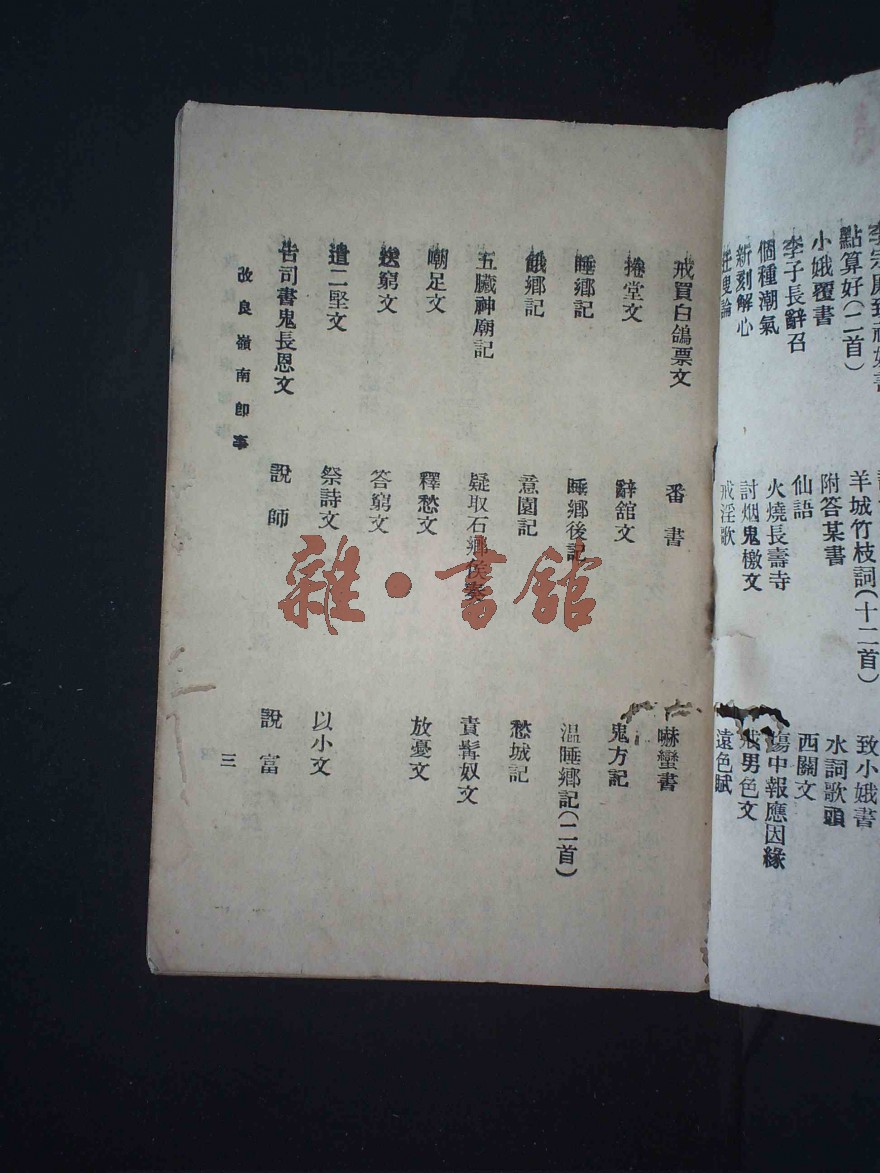 點算好(二首)
小娥覆書
李子長辭召
個種潮氣
新刻解心
羊城竹枝詞(十二首)
附答某書
仙語
火燒長壽寺
討烟鬼檄文
戒淫歌
致小娥書
水詞歌頭
西關文
傷中報應因緣
戒男色文
遠色賦
戒買白鴿票文
捲堂文
睡鄉記
餓鄉記
五臟神廟記
嘲足文
送窮文
遣二堅文
告司書鬼長恩文
番書
辭舘文
睡鄉後記
意園記
疑取石鄉侯奏
釋愁文
答窮文
祭詩文
說師
嚇蠻書
鬼方記
溫睡鄉記(二首)
愁城記
責髯奴文
放憂文
以小文
說富
改良嶺南即事
三
雜·書館